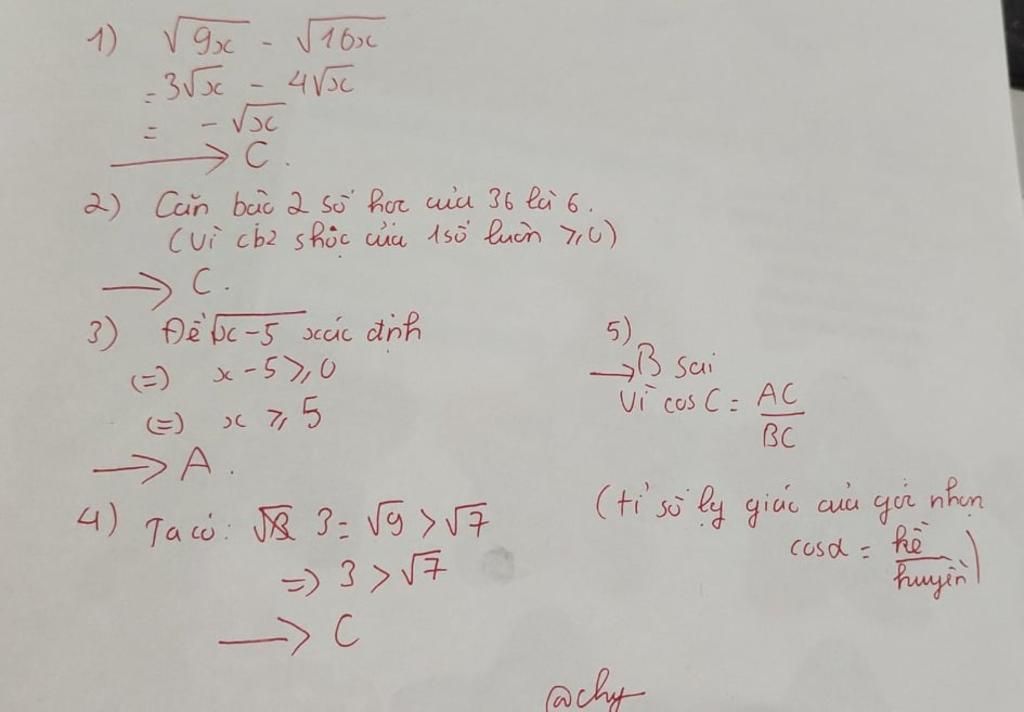 1) √9x - √16x
= 3√x - 4√x
= - √x
→ C.
2) Căn bậc 2 số học của 36 là 6.
(Vì cb2 shọc của 1 số luôn ≥ 0)
→ C.
3) Để √x-5 xác định
(=) x - 5 ≥ 0
(=) x ≥ 5
→ A.
4) Ta có: 3 = √9 > √7
=> 3 > √7
→ C
5)
→ B sai
Vì cos C = AC/BC
(tỉ số lg giác của góc nhọn
cosα = kề/huyền)
@chy